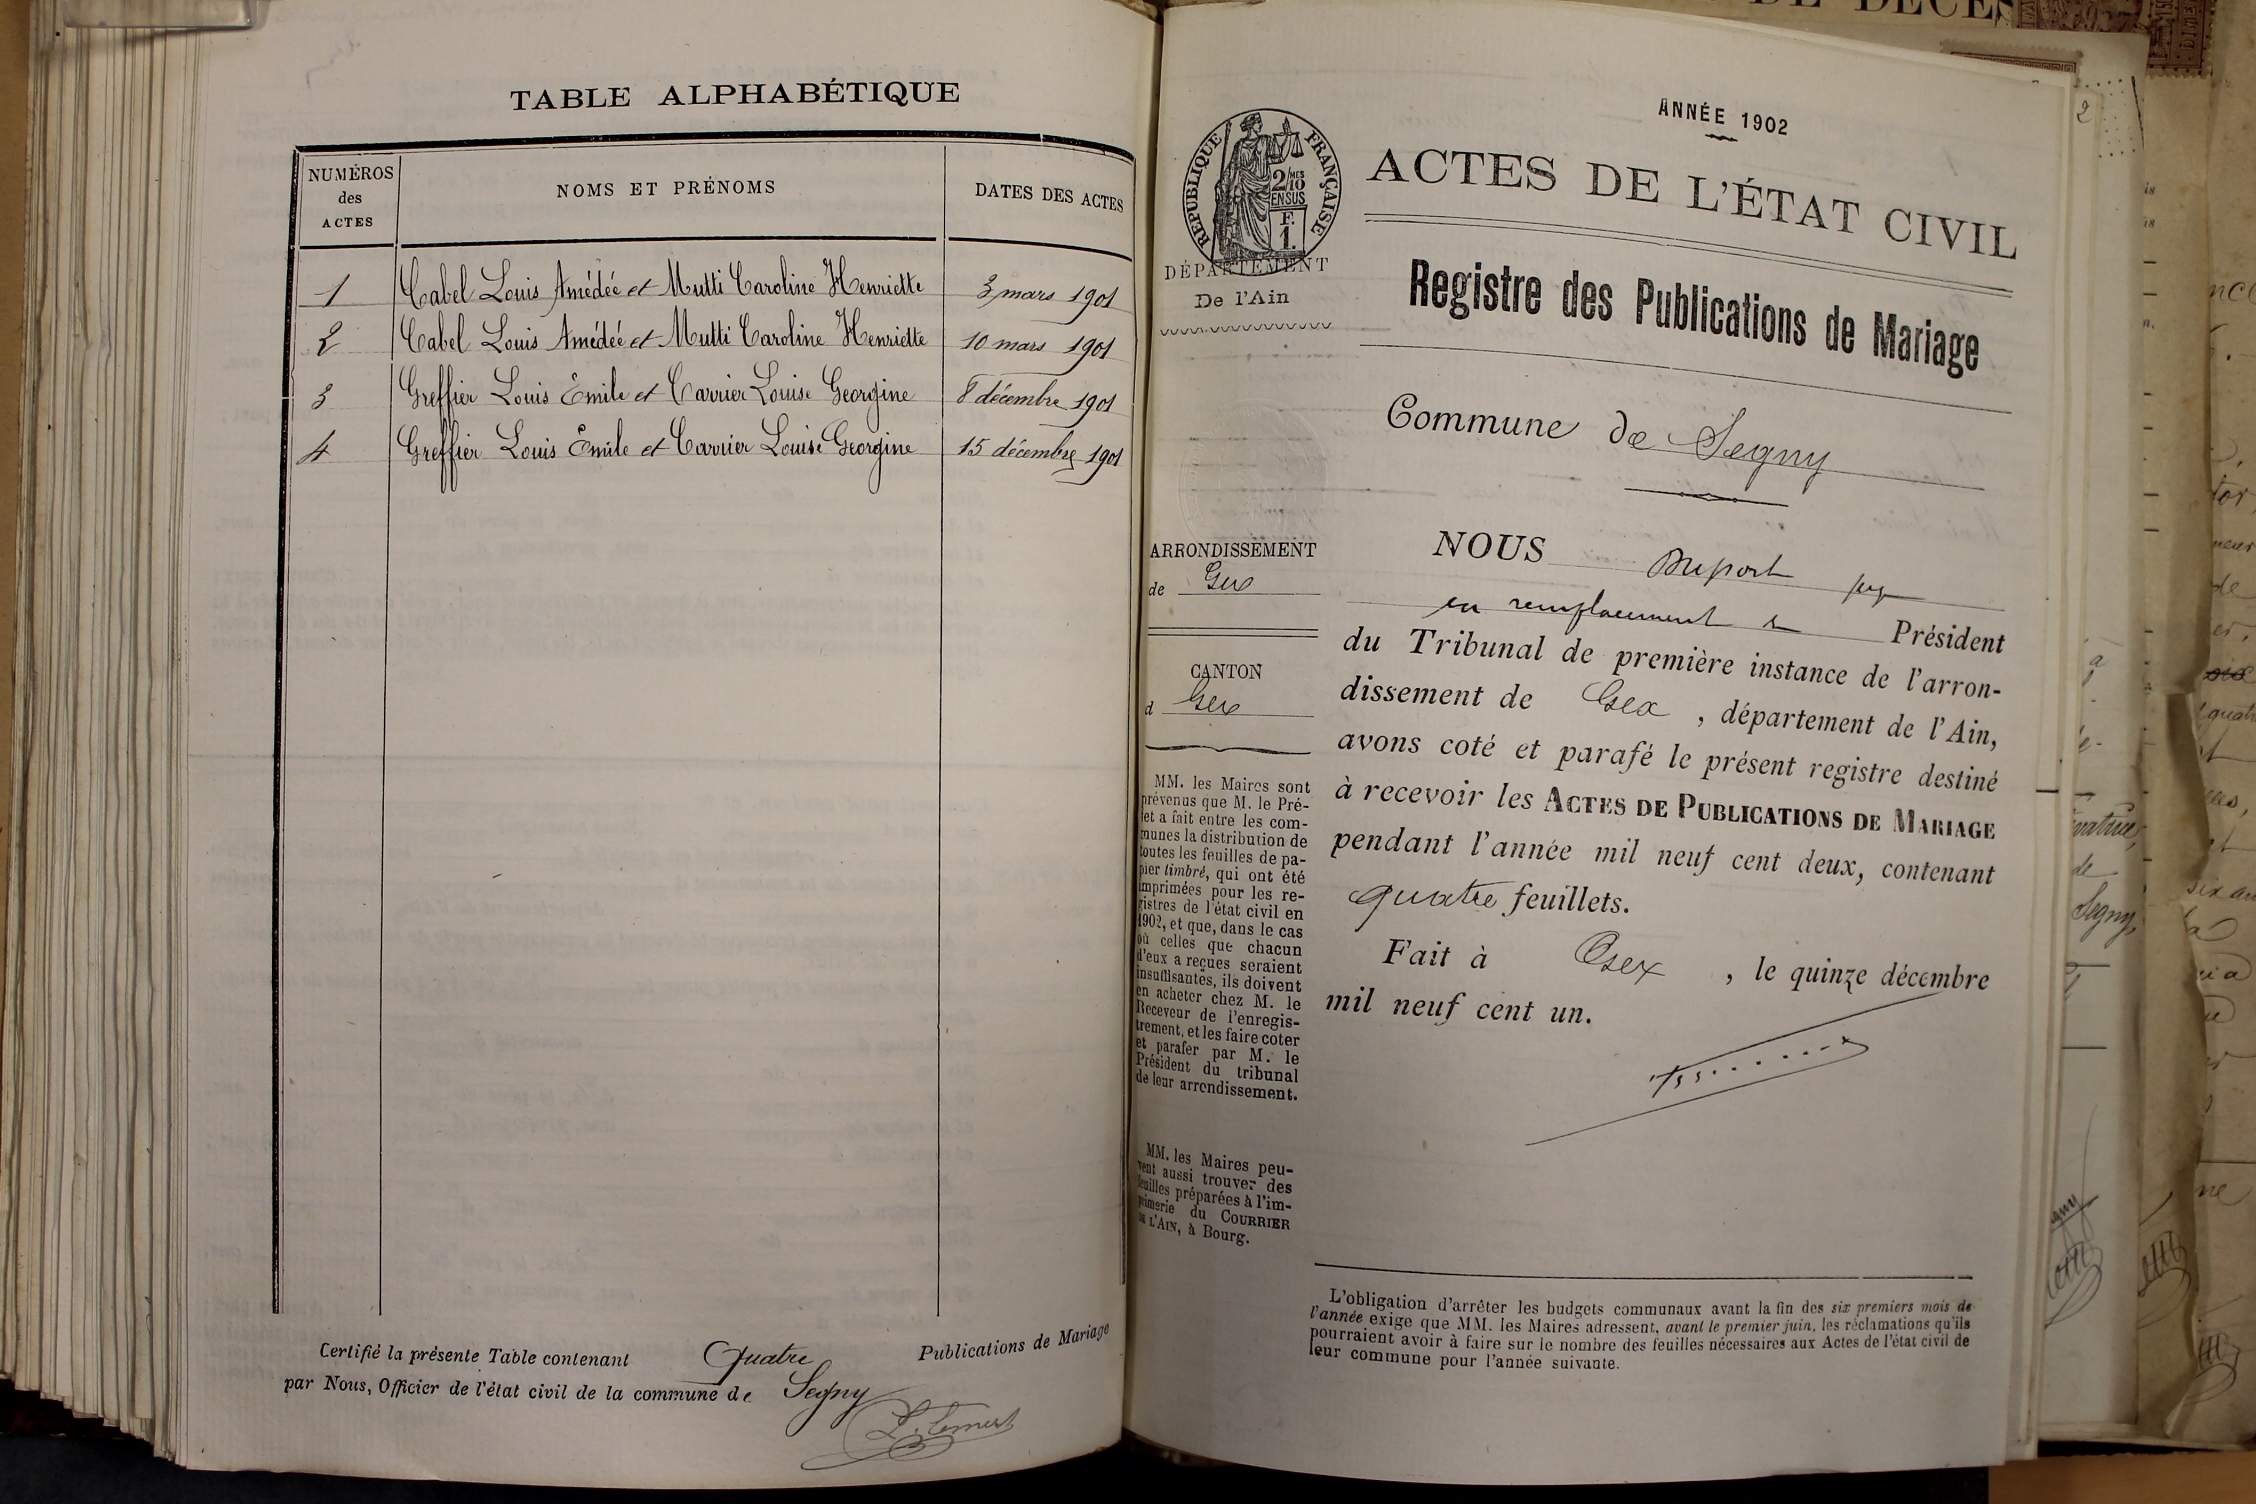 TABLE ALPHABÉTIQUE
NUMÉROS des ACTES
NOMS ET PRÉNOMS
DATES DES ACTES
1 Cabel Louis Amédée et Mutti Caroline Henriette 3 mars 1901
2 Cabel Louis Amédée et Mutti Caroline Henriette 10 mars 1901
3 Greffier Louis Emile et Carrier Louise Georgine 8 décembre 1901
4 Greffier Louis Emile et Carrier Louise Georgine 15 décembre 1901
Certifié la présente Table contenant Quatre Publications de Mariage
par Nous, Officier de l'état civil de la commune de Segny
ANNÉE 1902
RÉPUBLIQUE FRANÇAISE
2/10 MES
EN SUS
F.
1.
ACTES DE L'ÉTAT CIVIL
DÉPARTEMENT
De l'Ain
Registre des Publications de Mariage
Commune de Segny
ARRONDISSEMENT
de Gex
CANTON
d Gex
MM. les Maires sont
prévenus que M. le Pré-
fet a fait entre les com-
munes la distribution de
toutes les feuilles de pa-
pier timbré, qui ont été
imprimées pour les re-
gistres de l'état civil en
1902, et que, dans le cas
où celles que chacun
d'eux a reçues seraient
insuffisantes, ils doivent
en acheter chez M. le
Receveur de l'enregis-
trement, et les faire coter
et parafer par M. le
Président du tribunal
de leur arrondissement.
MM. les Maires peu-
vent aussi trouver des
feuilles préparées à l'im-
primerie du COURRIER
DE L'AIN, à Bourg.
NOUS Duport juge
en remplacement de Président
du Tribunal de première instance de l'arron-
dissement de Gex, département de l'Ain,
avons coté et parafé le présent registre destiné
à recevoir les ACTES DE PUBLICATIONS DE MARIAGE
pendant l'année mil neuf cent deux, contenant
quatre feuillets.
Fait à Gex, le quinze décembre
mil neuf cent un.
L'obligation d'arrêter les budgets communaux avant la fin des six premiers mois de
l'année exige que MM. les Maires adressent, avant le premier juin, les réclamations qu'ils
pourraient avoir à faire sur le nombre des feuilles nécessaires aux Actes de l'état civil de
leur commune pour l'année suivante.
2
DE DÉCES
de
Segny,